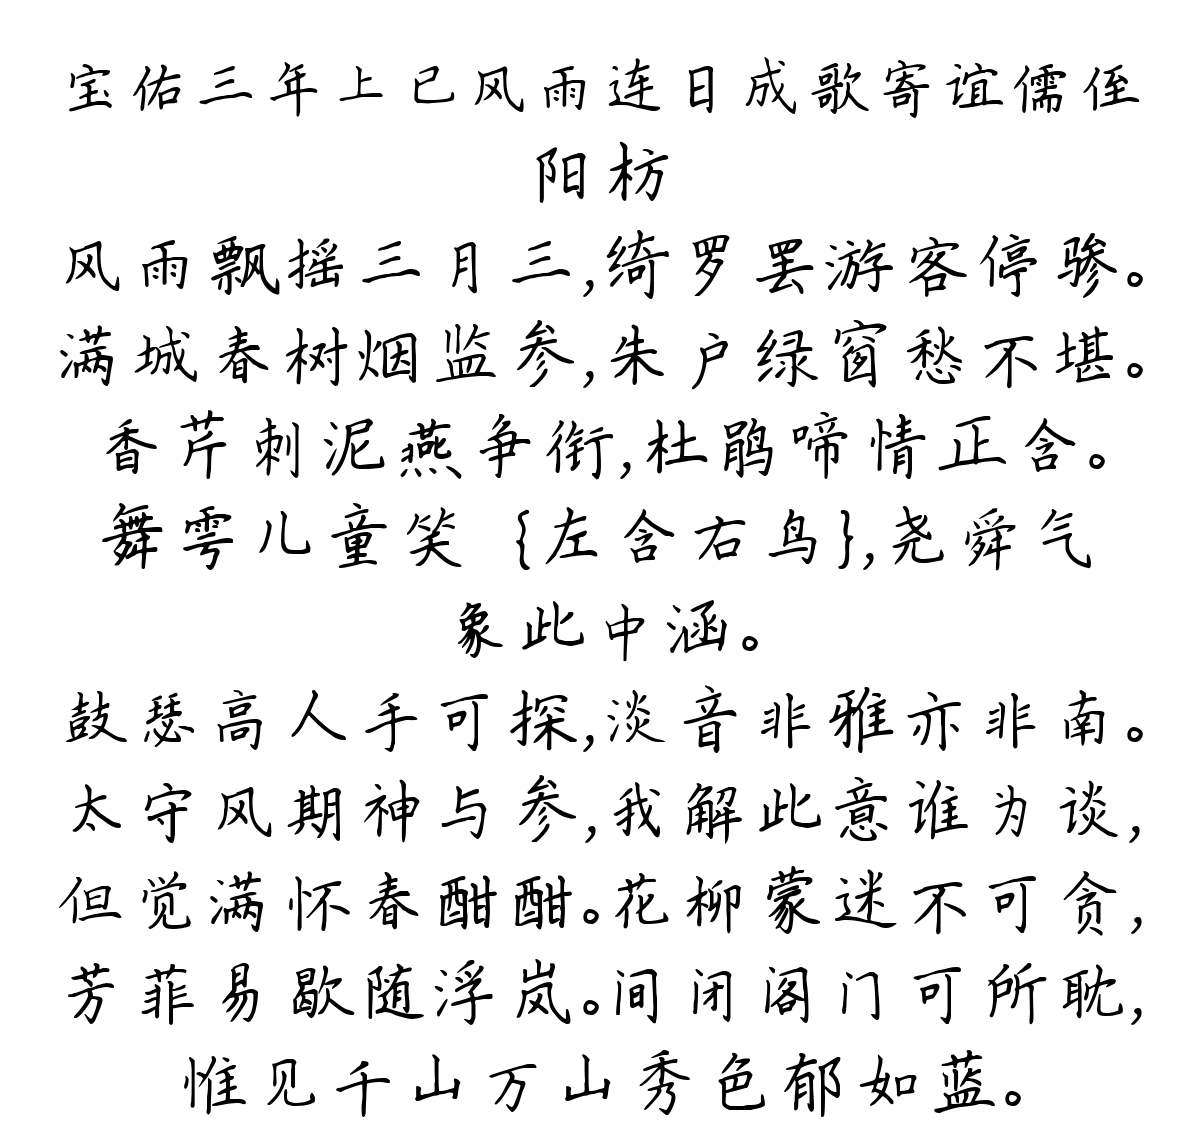 宝佑三年上已风雨连日成歌寄谊儒侄
阳枋
风雨飘摇三月三,绮罗罢游客停骖。
满城春树烟监参,朱户绿窗愁不堪。
香芹刺泥燕争衔,杜鹃啼情正含。
舞雩儿童笑 {左含右鸟},尧舜气
象此中涵。
鼓瑟高人手可探,淡音非雅亦非南。
太守风期神与参,我解此意谁为谈,
但觉满怀春酣酣。花柳蒙迷不可贪,
芳菲易歇随浮岚。间闭阁门可所耽,
惟见千山万山秀色郁如蓝。